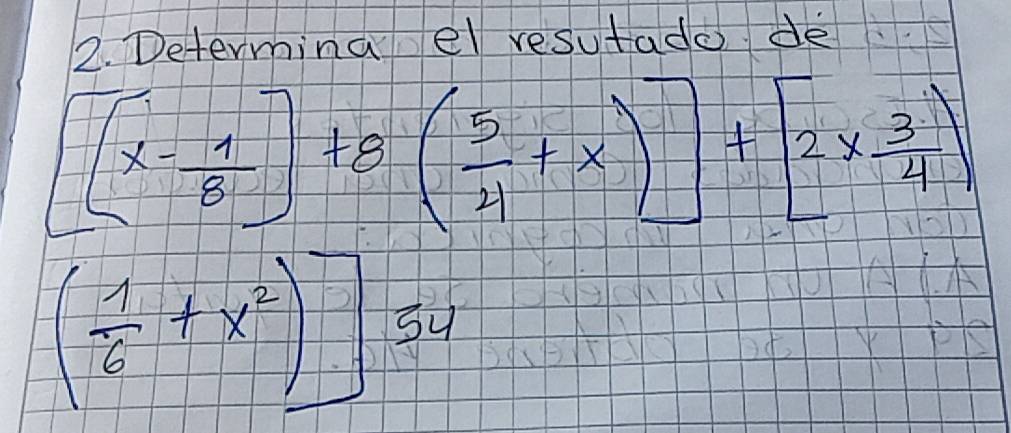 2. Determina el resutado de
[(x - 1/8] + 8 (5/4 + x)] + [2 x 3/4)
(1/6 + x²)] 54